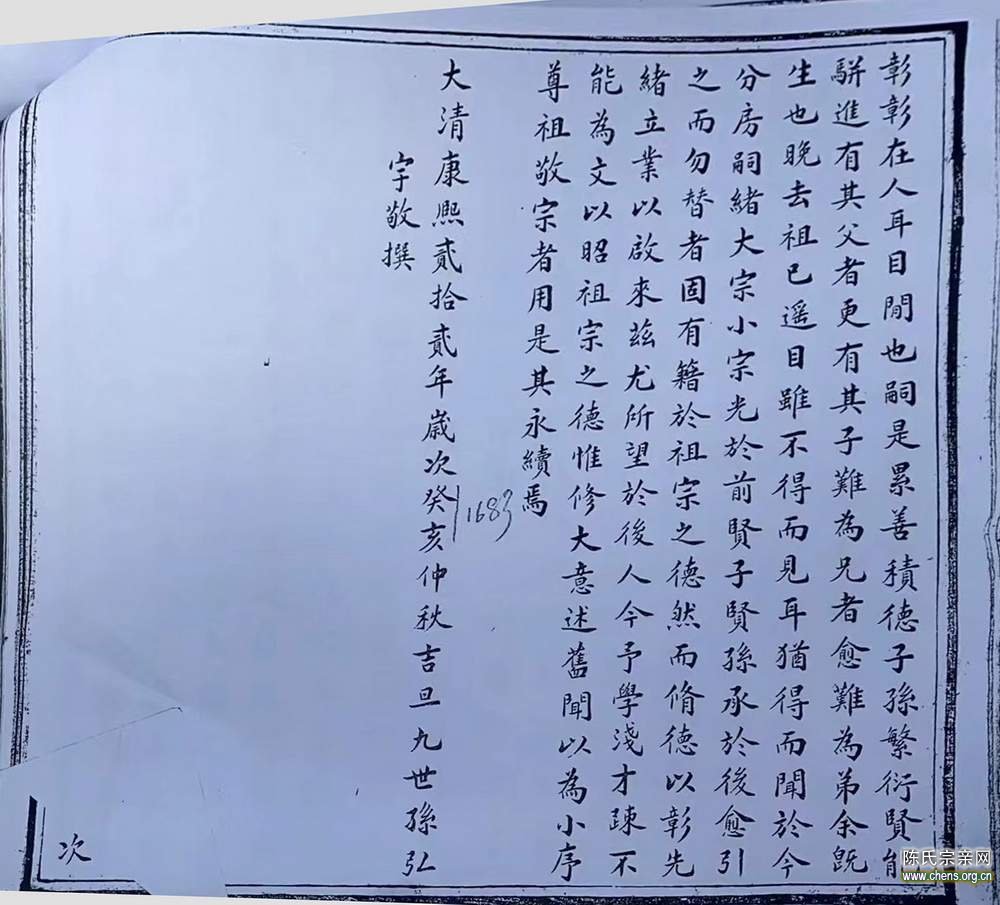 彰彰在人耳目間也嗣是累善積德子孫繁衍賢能
駢進有其父者更有其子難為兄者愈難為弟余既
生也晚去祖已遥目雖不得而見耳猶得而聞於今
分房嗣緒大宗小宗光於前賢子賢孫承於後愈引
之而勿替者固有籍於祖宗之德然而脩德以彰先
緒立業以啟來茲尤所望於後人今予學淺才疎不
能為文以昭祖宗之德惟修大意述舊聞以為小序
尊祖敬宗者用是其永續焉
大清康熙貳拾貳年歲次癸亥仲秋吉旦九世孫弘
1683
宇敬撰
次
陈氏宗亲网
www.chens.org.cn